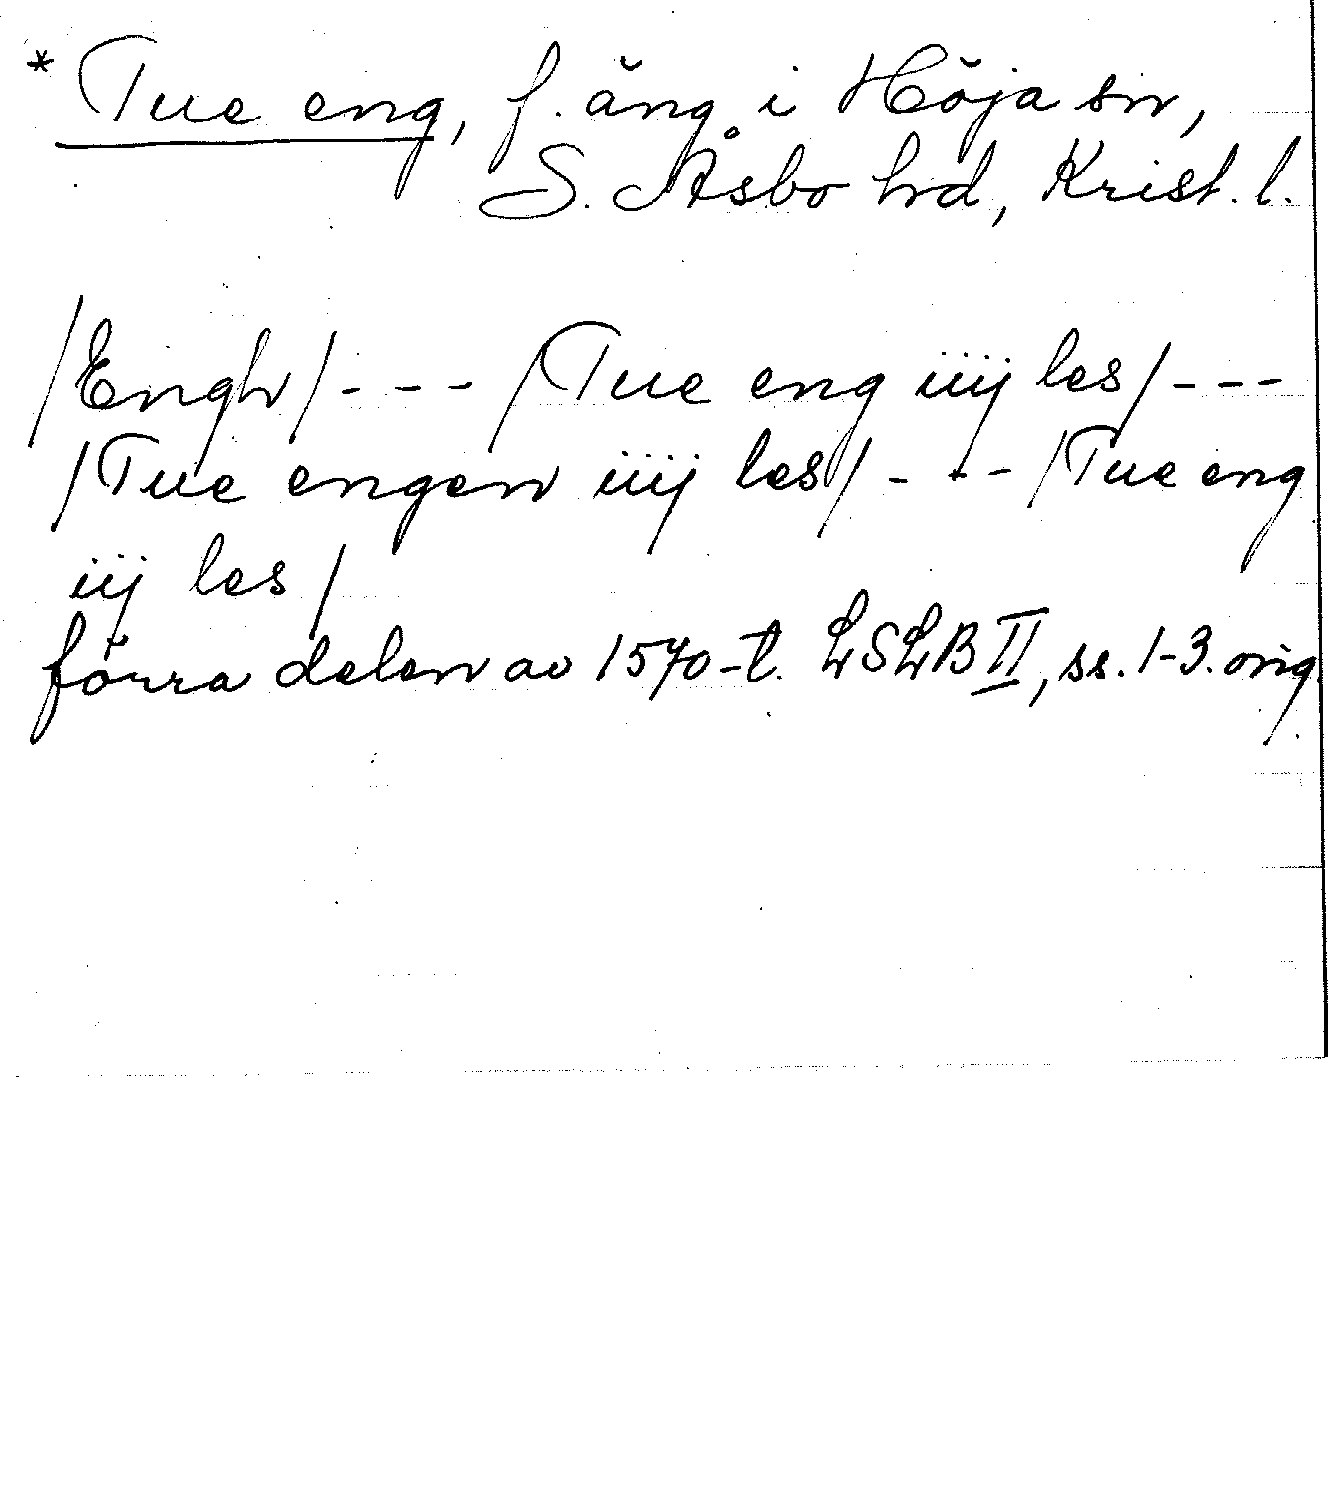 * Tue eng, f. äng i Höja sn,
S. Åsbo hd, Krist. l.
/Engh/ - - - /Tue eng iiij les/ - - -
/Tue engen iiij les/ - - - /Tue eng
iij les/
förra delen av 1570-t. LSLB II, ss. 1-3. orig.